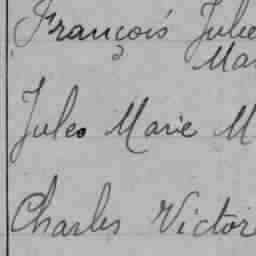 François Jule
Ma
Jules Marie M
Charles Victor